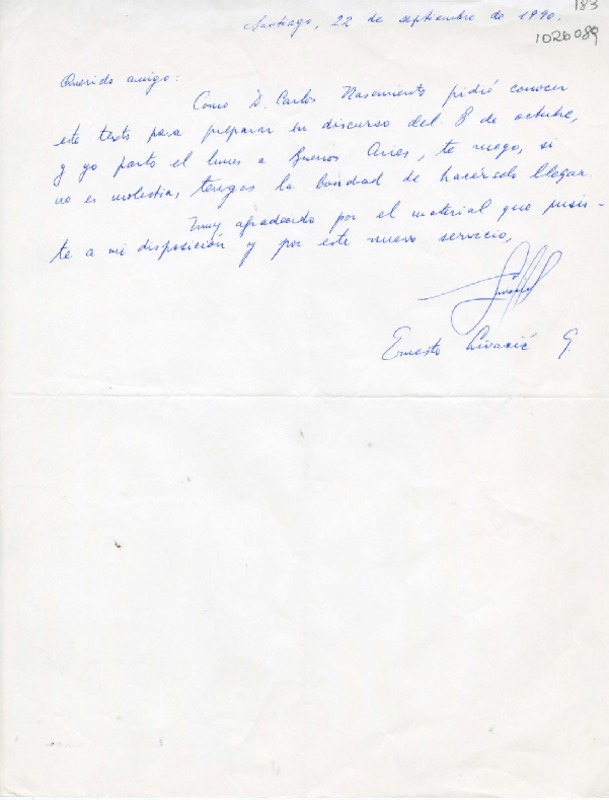 183
Santiago, 22 de septiembre de 1990.
1026089
Querido amigo:
Como D. Carlos Nascimento pidió conocer
este texto para preparar su discurso del 8 de octubre,
y yo parto el lunes a Buenos Aires, te ruego, si
no es molestia, tengas la bondad de hacérselo llegar.
Muy agradecido por el material que pusis-
te a mi disposición y por este nuevo servicio,
Ernesto Livacic G.